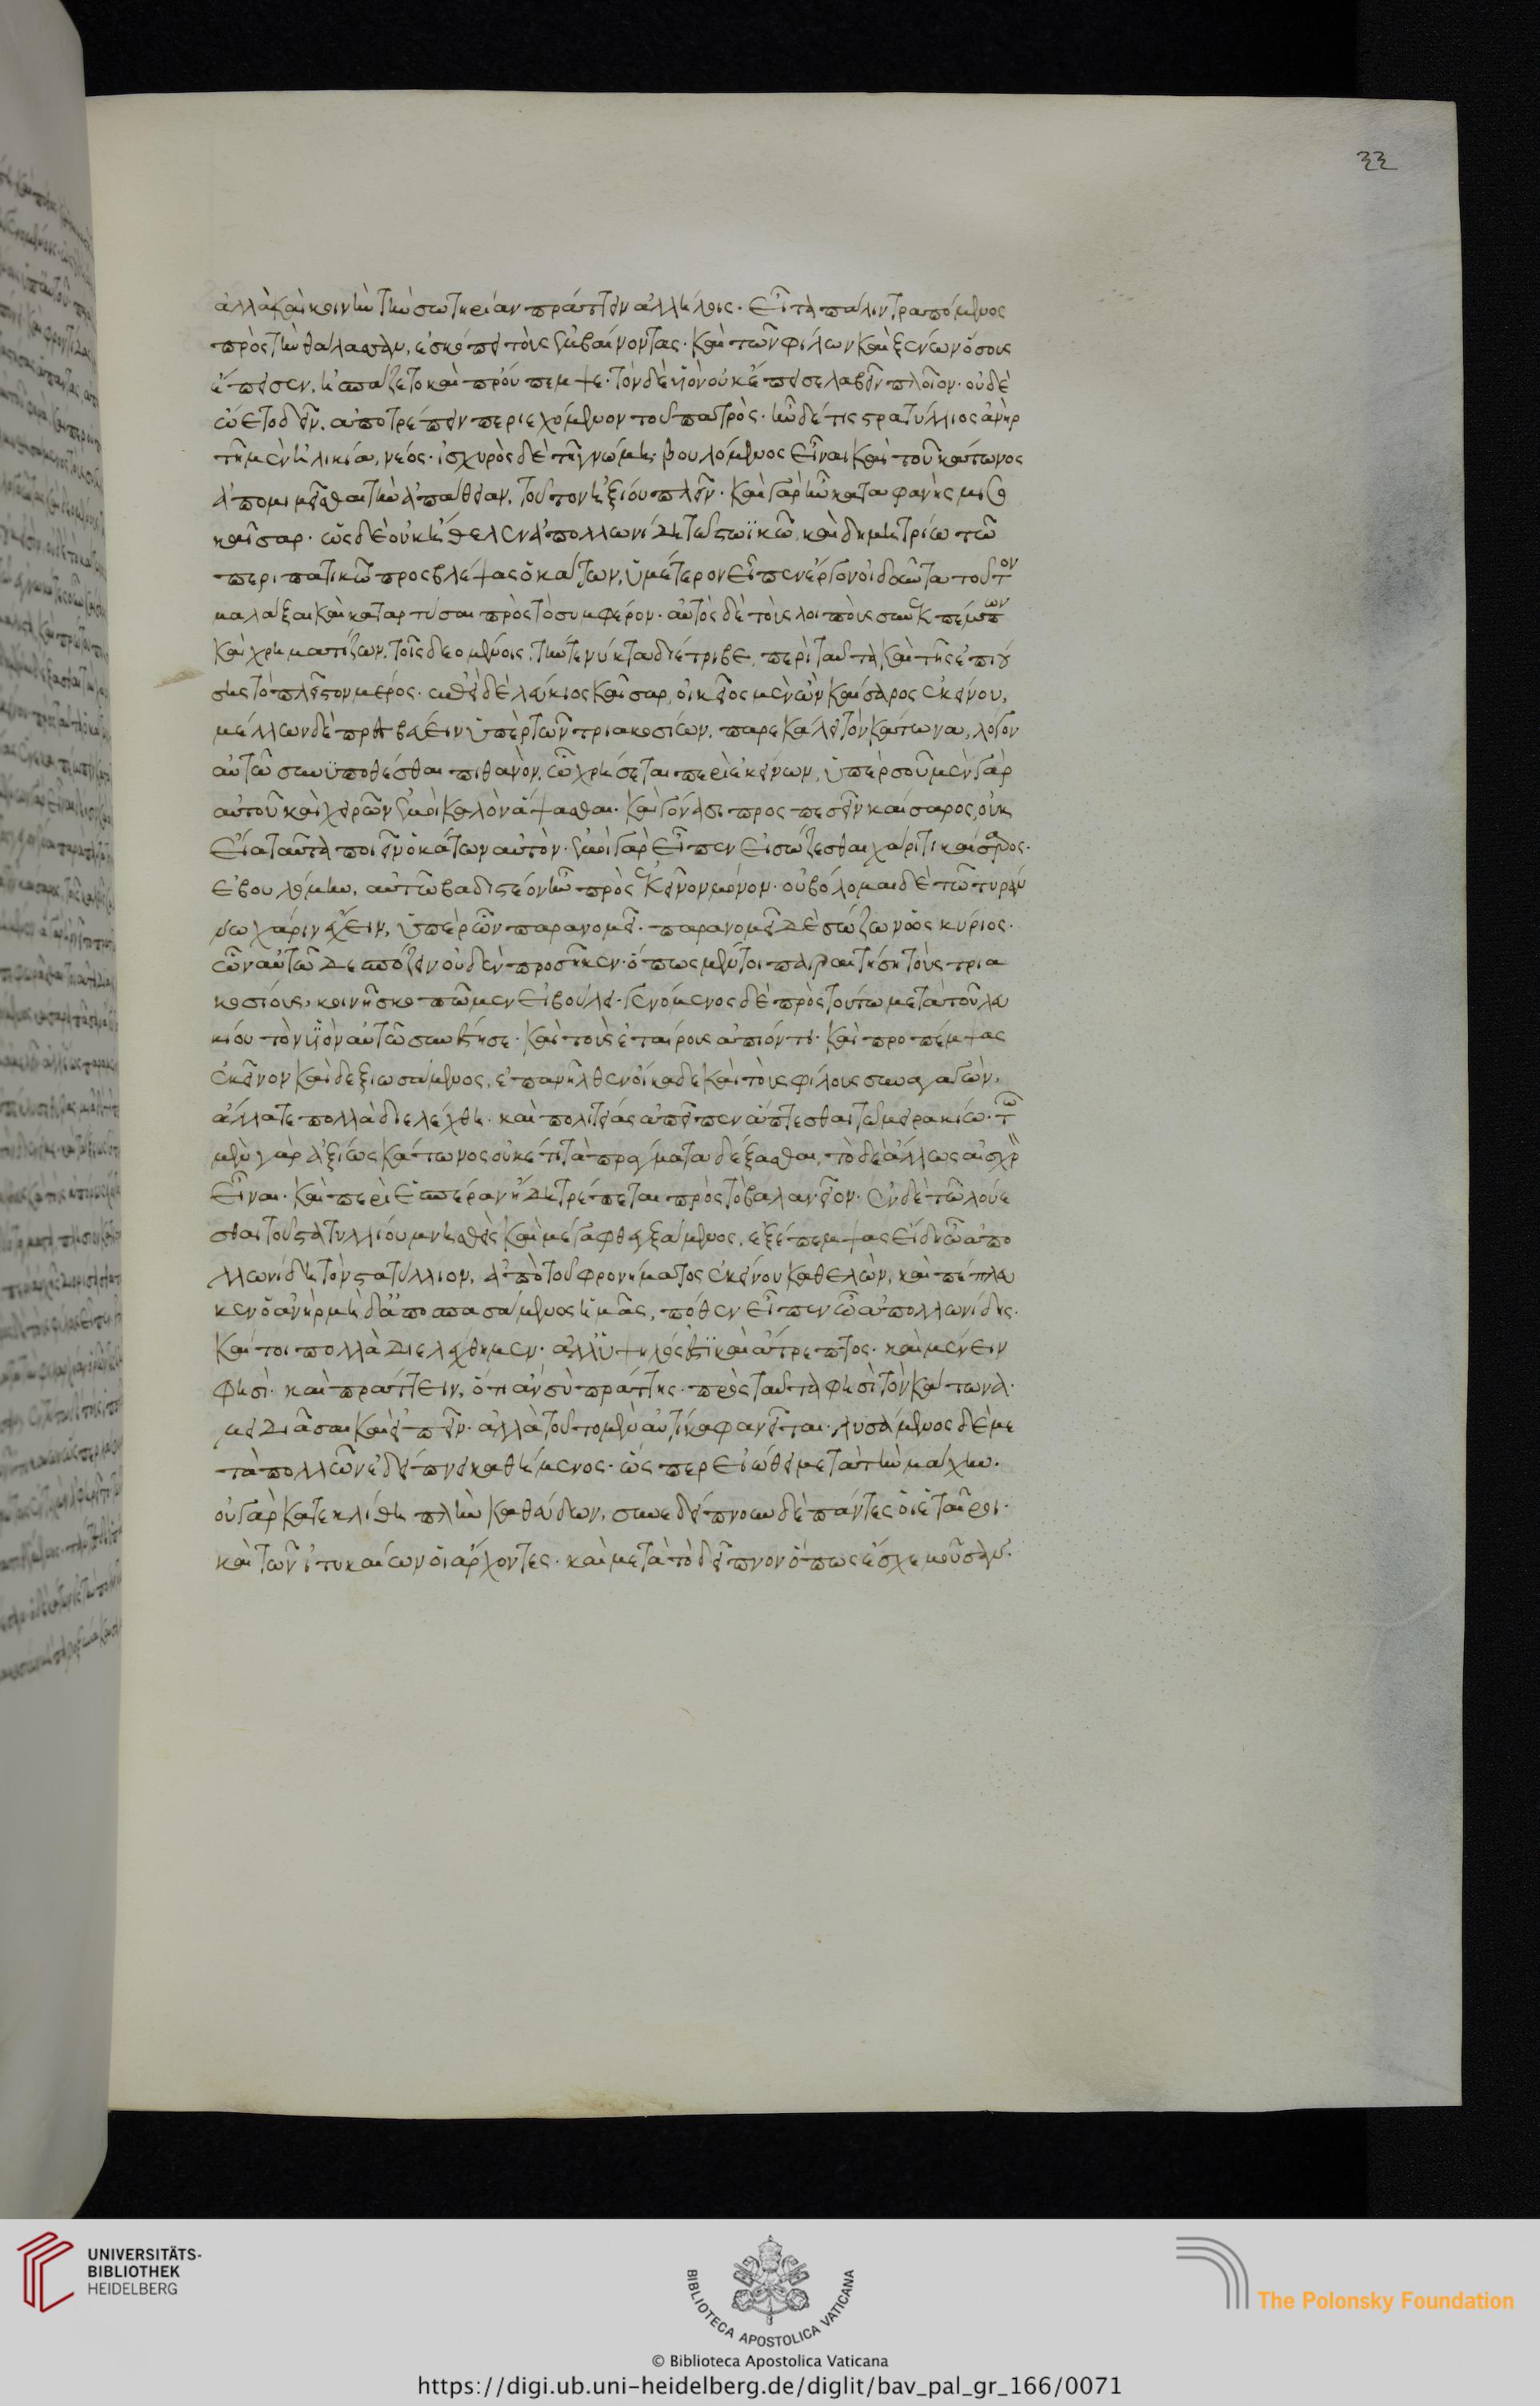 33
ἀλλὰ καὶ κοινὴν τὴν σωτηρίαν πράττειν ἀλλήλοις· εἶτα πάλιν τραπόμενος
πρὸς τὴν θάλασσαν, ἐσκόπει τοὺς ἐμβαίνοντας· καὶ τῶν φίλων καὶ ξένων ὅσους
ἔπεισεν, ἠσπάζετο καὶ προύπεμψε· τὸν δὲ υἱὸν οὐκ ἔπεισε λαβεῖν πλοῖον· οὐδὲ
ᾤετο δεῖν, ἀποτρέπειν περιεχόμενον τοῦ πατρός· ἦν δέ τις στατύλλιος ἀνὴρ
τῇ μὲν ἡλικίᾳ, νέος· ἰσχυρὸς δὲ τῇ γνώμῃ βουλόμενος εἶναι καὶ τοῦ κάτωνος
ἀπομιμεῖσθαι τὴν ἀπάθειαν, τοῦτον ἠξίου πλεῖν· καὶ γὰρ ἦν καταφανὴς μισο
καῖσαρ· ὡς δὲ οὐκ ἤθελεν ἀπολλωνίδῃ τῷ στωϊκῷ, καὶ δημητρίῳ τῷ
περιπατικῷ προσβλέψας ὁ κάτων, ὑμέτερον εἶπεν ἔργον οἰδῶντα τοῦτον
μαλάξαι καὶ καταρτύσαι πρὸς τὸ συμφέρον· αὐτὸς δὲ τοὺς λοιποὺς συνεκπέμπων
καὶ χρηματίζων, τοῖς δεομένοις, τήν τε νύκτα διέτριβε, περὶ ταῦτα καὶ τῆς ἐπιού
σης τὸ πλεῖστον μέρος· ἐπεὶ δὲ λεύκιος καῖσαρ, οἰκεῖος μὲν ὢν καίσαρος ἐκείνου,
μέλλων δὲ πρεσβεύειν ὑπὲρ τῶν τριακοσίων, παρεκάλει τὸν κάτωνα, λόγον
αὐτῷ συνϋποθέσθαι πιθανόν, ᾧ χρήσεται περὶ ἐκείνων, ὑπὲρ σοῦ μὲν γὰρ
αὐτοῦ καὶ χειρῶν ἐμοὶ καλὸν ἅψασθαι· καὶ γόνασι προσπεσεῖν καίσαρος, οὐκ
εἴα ταῦτα ποιεῖν ὁ κάτων αὐτόν· ἐμοὶ γὰρ εἶπεν εἰ σώζεσθαι χάριτι καίσαρος·
ἐβουλόμην, αὐτῷ βαδιστέον ἦν πρὸς ἐκεῖνον μόνον· οὐ βούλομαι δὲ τῷ τυράν
νῳ χάριν ἔχειν, ὑπὲρ ὧν παρανομεῖ· παρανομεῖ δὲ σώζων ὡς κύριος·
ὧν αὐτῷ δεσπόζειν οὐδὲν προσῆκεν· ὅπως μέντοι παραιτήσῃ τοὺς τρια
κοσίους, κοινῇ σκοπῶμεν εἰ βούλει· γενόμενος δὲ πρὸς τούτῳ μετὰ τοῦ λευ
κίου τὸν υἱὸν αὐτῷ συνέστησε· καὶ τοὺς ἑταίρους ἀπιόντι· καὶ προπέμψας
ἐκεῖνον καὶ δεξιωσάμενος, ἐπανῆλθεν οἴκαδε καὶ τοὺς φίλους συναγαγών,
ἄλλα τε πολλὰ διελέχθη· καὶ πολιτείας ἀπεῖπεν ἅπτεσθαι τῷ μειρακίῳ· τῷ
μὲν γὰρ ἀξίως κάτωνος οὐκέτι τὰ πράγματα δέξασθαι, τὸ δὲ ἄλλως αἰσχρὸν
εἶναι· καὶ περὶ ἑσπέραν ἤδη τρέπεται πρὸς τὸ βαλανεῖον· ἐν δὲ τῷ λούε
σθαι τοῦ στατυλλίου μνησθεὶς καὶ μέγα φθεγξάμενος, ἐξέπεμψας εἶπεν ὦ ἀπο
λλωνίδη τὸν στατύλλιον, ἀπὸ τοῦ φρονήματος ἐκείνου καθελών, καὶ πέπλευ
κεν ὁ ἀνὴρ μηδὲ ἀσπασάμενος ἡμᾶς, πόθεν εἶπεν ὁ ἀπολλωνίδης·
καί τοι πολλὰ διελέχθημεν· ἀλλ' ὑψηλός ἐστι καὶ ἄτρεπτος· καὶ μένειν
φησὶ· καὶ πράττειν, ὅτι ἂν σὺ πράττῃς· πρὸς ταῦτα φησὶ τὸν κάτωνα·
μειδιᾶσαι καὶ εἰπεῖν· ἀλλὰ τοῦτο μὲν αὐτίκα φανεῖται· λυσάμενος δὲ με
τὰ πολλῶν ἐδείπνει καθήμενος· ὥσπερ εἰώθει μετὰ τὴν μάχην·
οὐ γὰρ κατεκλίθη πλὴν καθεύδων, συνεδείπνουν δὲ πάντες οἱ ἑταῖροι·
καὶ τῶν ἰτυκαίων οἱ ἄρχοντες· καὶ μετὰ τὸ δεῖπνον ὁ πότος ἔσχε μοῦσαν·
UNIVERSITÄTS-
BIBLIOTHEK
HEIDELBERG
BIBLIOTECA APOSTOLICA VATICANA
The Polonsky Foundation
© Biblioteca Apostolica Vaticana
https://digi.ub.uni-heidelberg.de/diglit/bav_pal_gr_166/0071